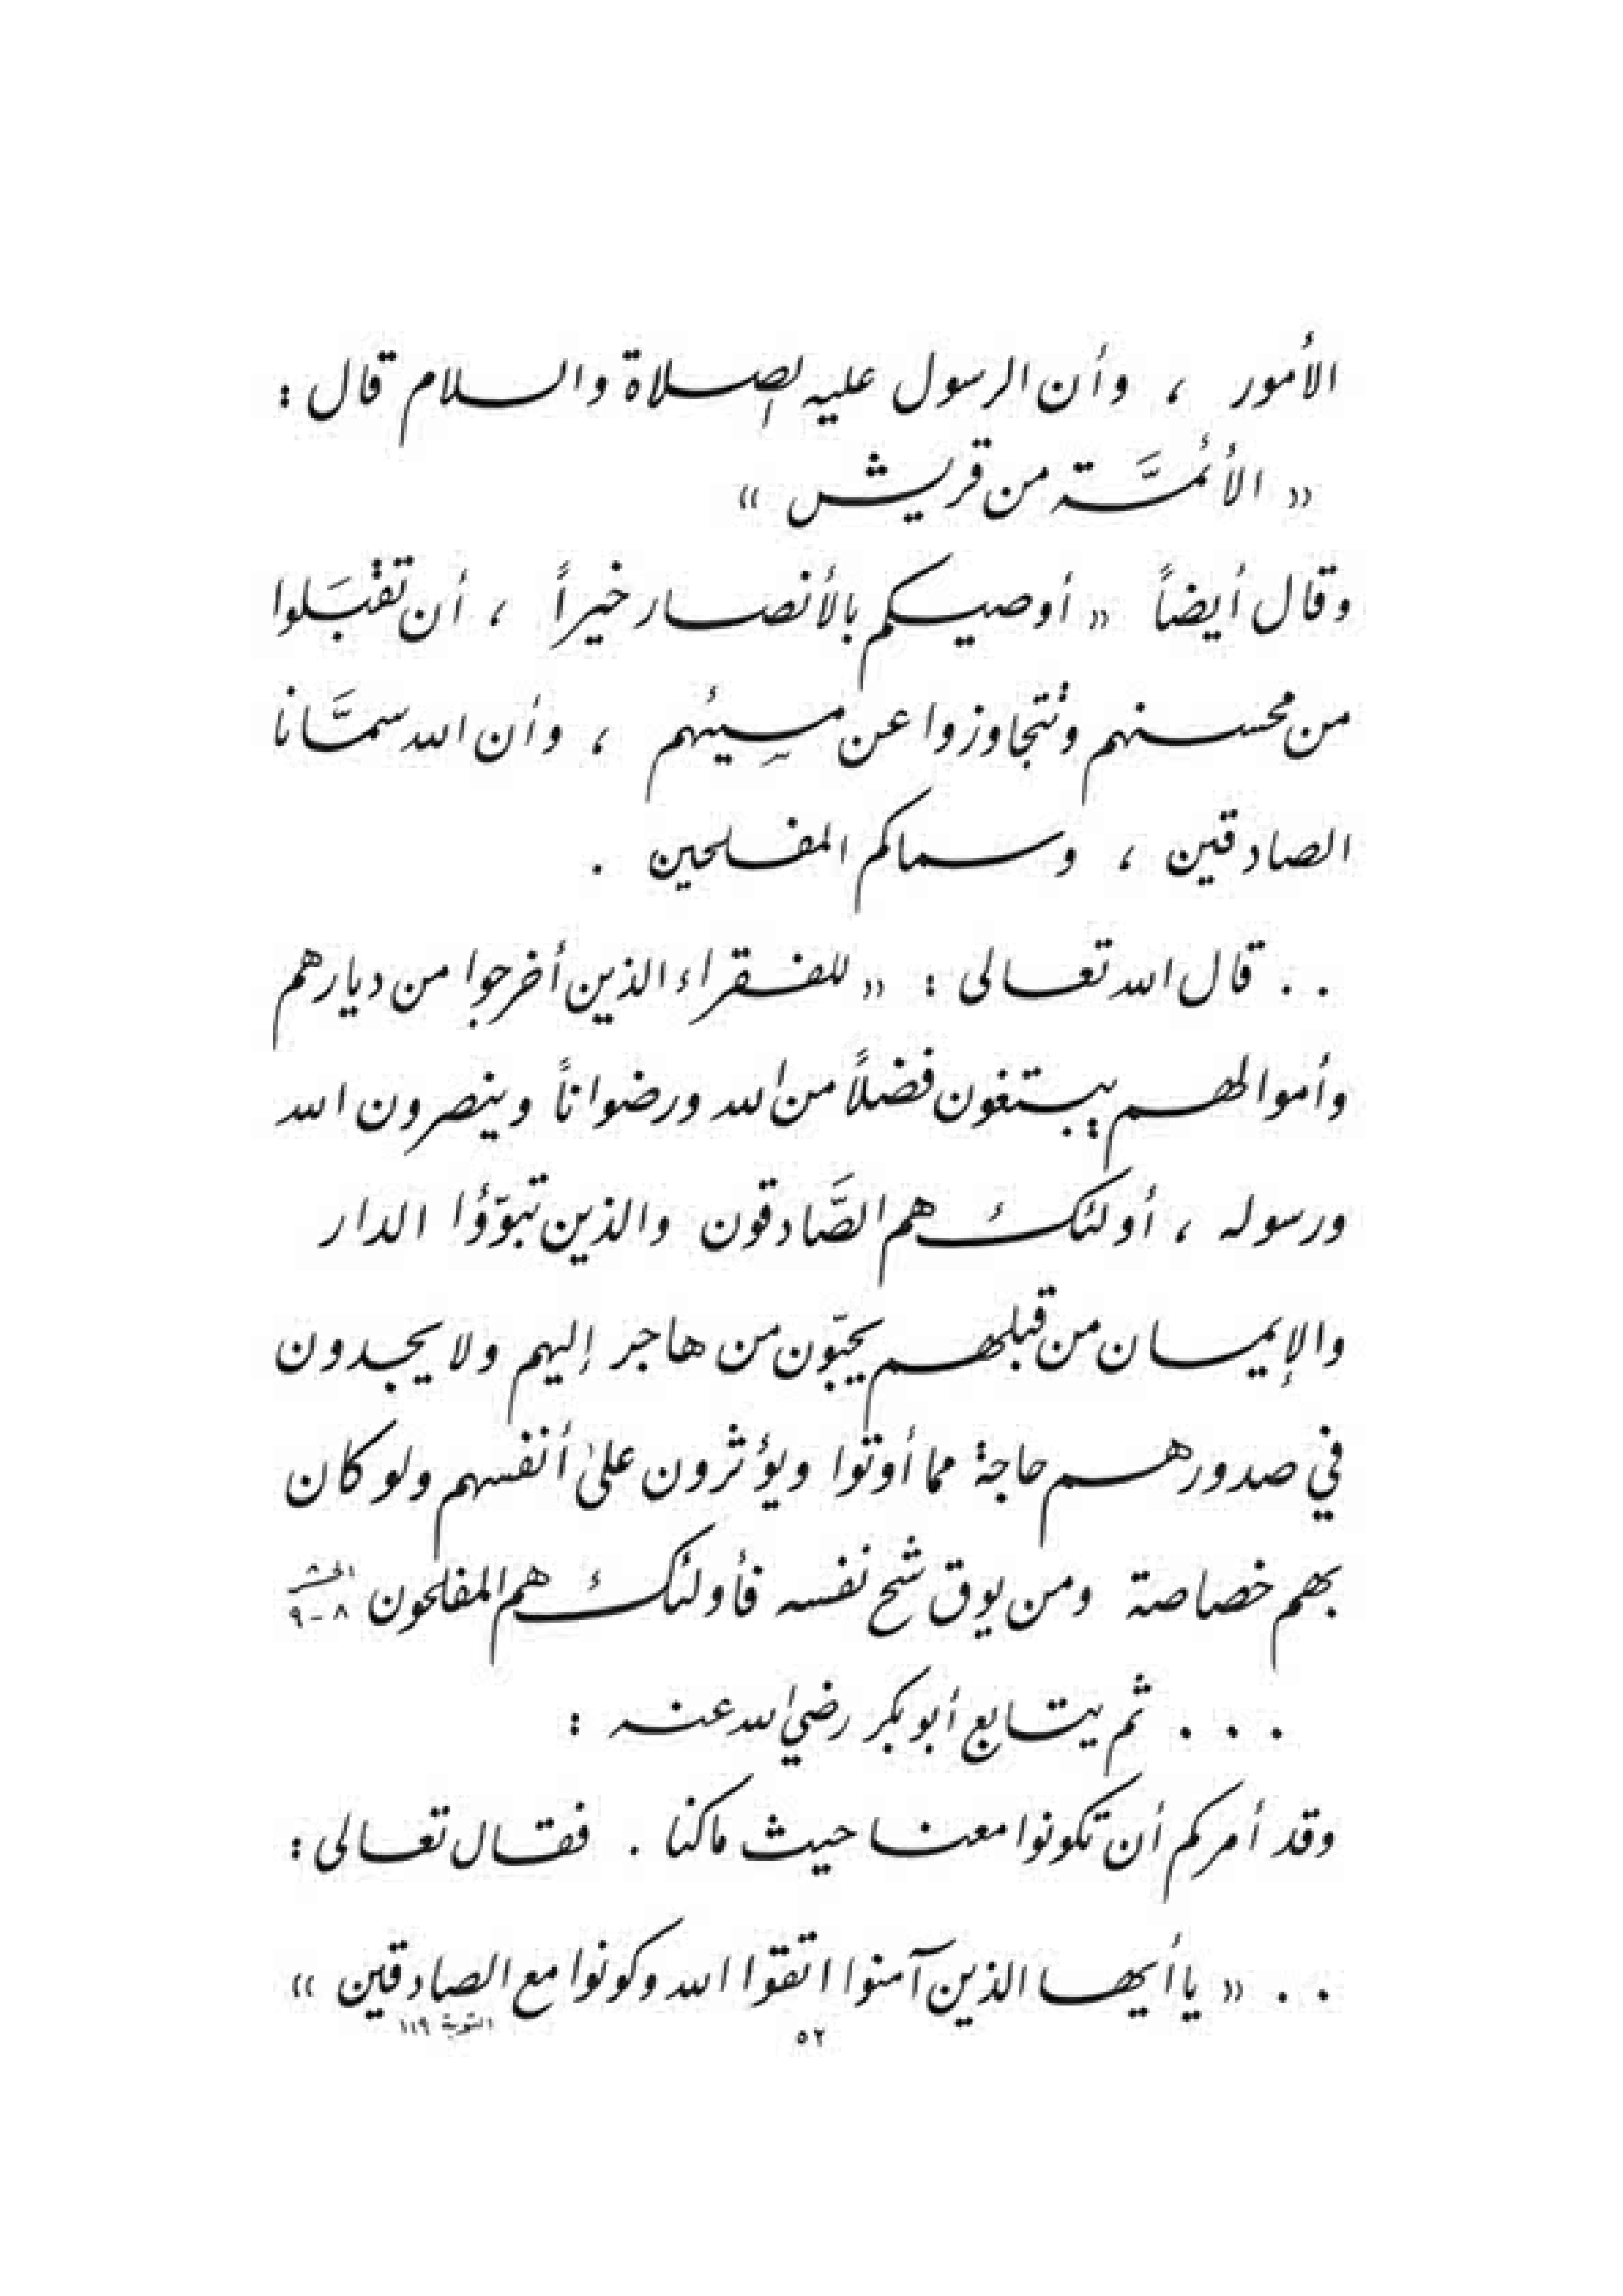 الأمور ، وأن الرسول عليه الصلاة والسلام قال :
« الأئمَّة من قريش »
وقال أيضاً « أوصيكم بالأنصار خيراً ، أن تقبَلوا
من محسنهم وتتجاوزوا عن مسِيئهم ، وأن الله سمَّانا
الصادقين ، وسماكم المفلحين .
. . قال الله تعالى : « للفقراء الذين أخرجوا من ديارهم
وأموالهم يبتغون فضلاً من الله ورضواناً وينصرون الله
ورسوله ، أولئك هم الصَّادقون والذين تبوّؤُا الدار
والإيمان من قبلهم يحبّون من هاجر إليهم ولا يجدون
في صدورهم حاجة مما أوتوا ويؤثرون على أنفسهم ولو كان
بهم خصاصة ومن يوق شح نفسه فأولئك هم المفلحون الحشر ٨-٩
. . . ثم يتابع أبو بكر رضي الله عنه :
وقد أمركم أن تكونوا معنا حيث ما كنا . فقال تعالى :
. . « يا أيها الذين آمنوا اتقوا الله وكونوا مع الصادقين »
التوبة ١١٩
٥٢